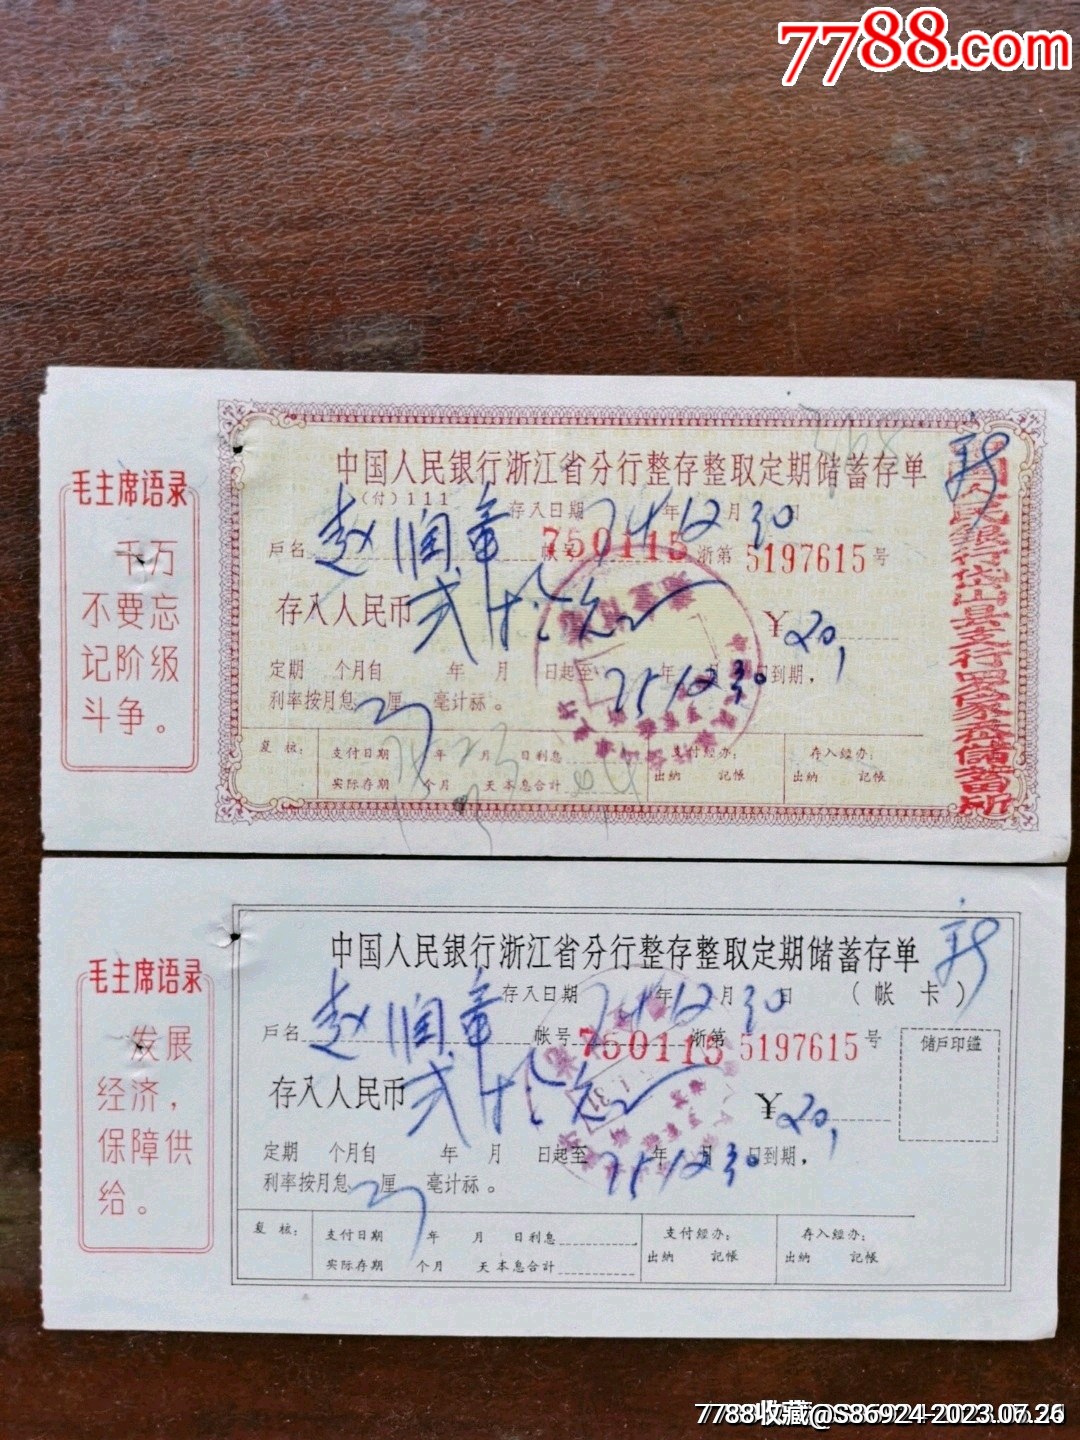 7788.com
368
新
中国人民银行浙江省分行整存整取定期储蓄存单
(付)111
存入日期 74年12月30日
户名 赵润章 帐号 750115 浙第 5197615 号
存入人民币 贰拾元 ¥20,
定期 个月自 年 月 日起至 75年12月30日到期，
利率按月息 厘 毫计祘。
复 核： 支付日期 年 月 日利息 支付经办： 存入经办：
实际存期 个月 天本息合计 出纳 记帐 出纳 记帐
中国人民银行岱山县支行
储蓄所
毛主席语录
千万
不要忘
记阶级
斗争。
新
中国人民银行浙江省分行整存整取定期储蓄存单
存入日期 74年12月30日 （帐 卡）
户名 赵润章 帐号 750115 浙第 5197615 号
储户印鑑
存入人民币 贰拾元 ¥20,
定期 个月自 年 月 日起至 75年12月30日到期，
利率按月息 厘 毫计祘。
复 核： 支付日期 年 月 日利息 支付经办： 存入经办：
实际存期 个月 天本息合计 出纳 记帐 出纳 记帐
毛主席语录
发展
经济，
保障供
给。
7788收藏@S86924-2023.07.26